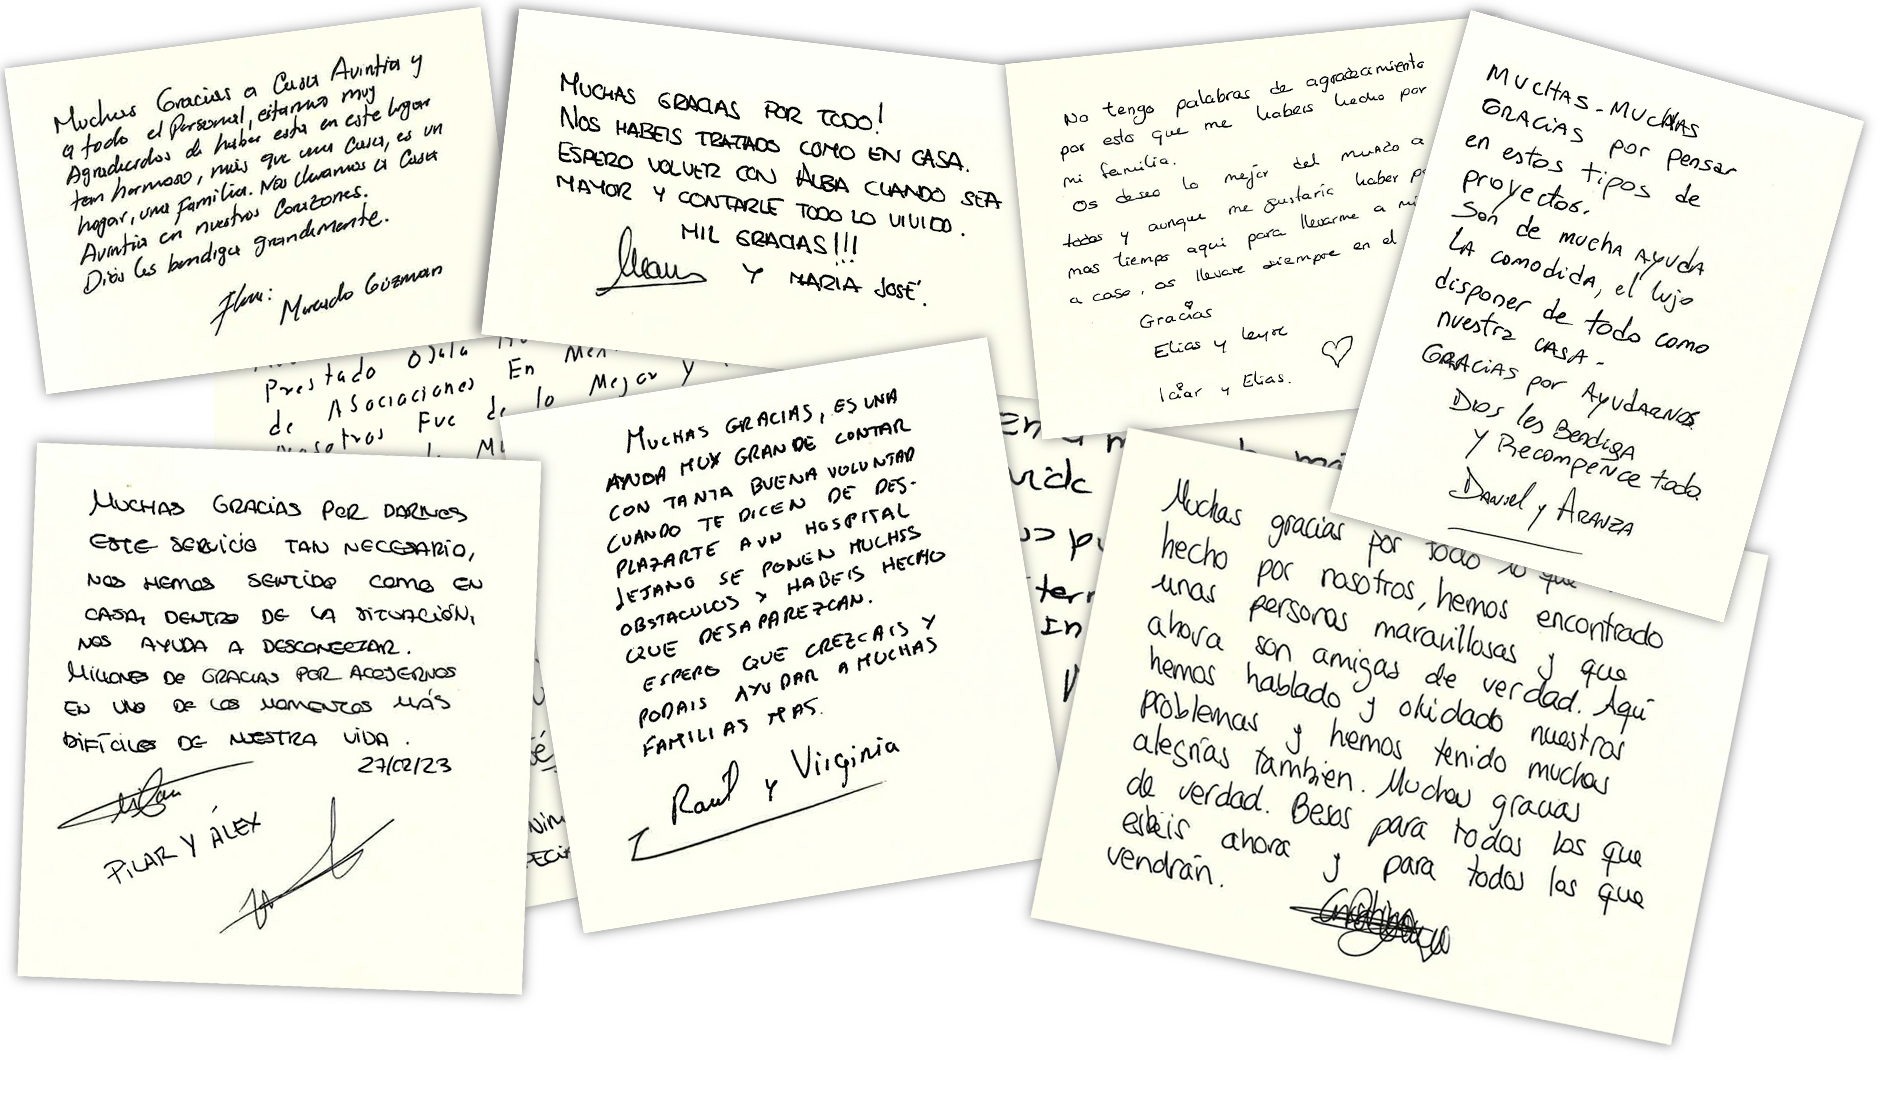 Muchas Gracias a Casa Avintia y
a todo el Personal, estamos muy
Agradecidos de haber esta en este lugar
tan hermoso, más que una Casa, es un
hogar, una Familia. Nos llevamos a Casa
Avintia en nuestros Corazones.
Dios les bendiga grandemente.
Guzman
MUCHAS GRACIAS POR TODO!
NOS HABEIS TRATADO COMO EN CASA.
ESPERO VOLVER CON ALBA CUANDO SEA
MAYOR Y CONTARLE TODO LO VIVIDO.
MIL GRACIAS!!!
Y MARIA JOSÉ.
No tengo palabras de agradecimiento
por esto que me habeis hecho por
mi familia.
Os deseo lo mejor del mundo a
todos y aunque me gustaria haber
mas tiempo aqui para llevarme a
a casa, os llevare siempre en el
Gracias
Elias y leyre
Iciar y Elias.
MUCHAS - MUCHAS
GRACIAS por pensar
en estos tipos de
proyectos.
Son de mucha AYUDA
LA comodida, el lujo
disponer de todo como
nuestra CASA -
GRACIAS por AYUDARNOS
DIOS les Bendiga
y Recompence todo.
DANIEL y ARANZA
Prestado Ojala
de ASociaciones En
nosotros Fue de lo Mejor y
MUCHAS GRACIAS POR DARNOS
ESTE SERVICIO TAN NECESARIO,
NOS HEMOS SENTIDO COMO EN
CASA, DENTRO DE LA SITUACIÓN,
NOS AYUDA A DESCONECTAR.
MILLONES DE GRACIAS POR ACOJERNOS
EN UNO DE LOS MOMENTOS MÁS
DIFÍCILES DE NUESTRA VIDA.
27/02/23
PILAR Y ÁLEX
MUCHAS GRACIAS, ES UNA
AYUDA MUY GRANDE CONTAR
CON TANTA BUENA VOLUNTAD
CUANDO TE DICEN DE DES-
PLAZARTE A UN HOSPITAL
LEJANO SE PONEN MUCHOS
OBSTACULOS Y HABEIS HECHO
QUE DESAPAREZCAN.
ESPERO QUE CREZCAIS Y
PODAIS AYUDAR A MUCHAS
FAMILIAS MAS.
Raul y Virginia
Muchas gracias por todo lo que
hecho por nosotros, hemos encontrado
unas personas maravillosas y que
ahora son amigas de verdad. Aquí
hemos hablado y olvidado nuestros
problemas y hemos tenido muchas
alegrías tambien. Muchas gracias
de verdad. Besos para todos los que
estéis ahora y para todos los que
vendrán.